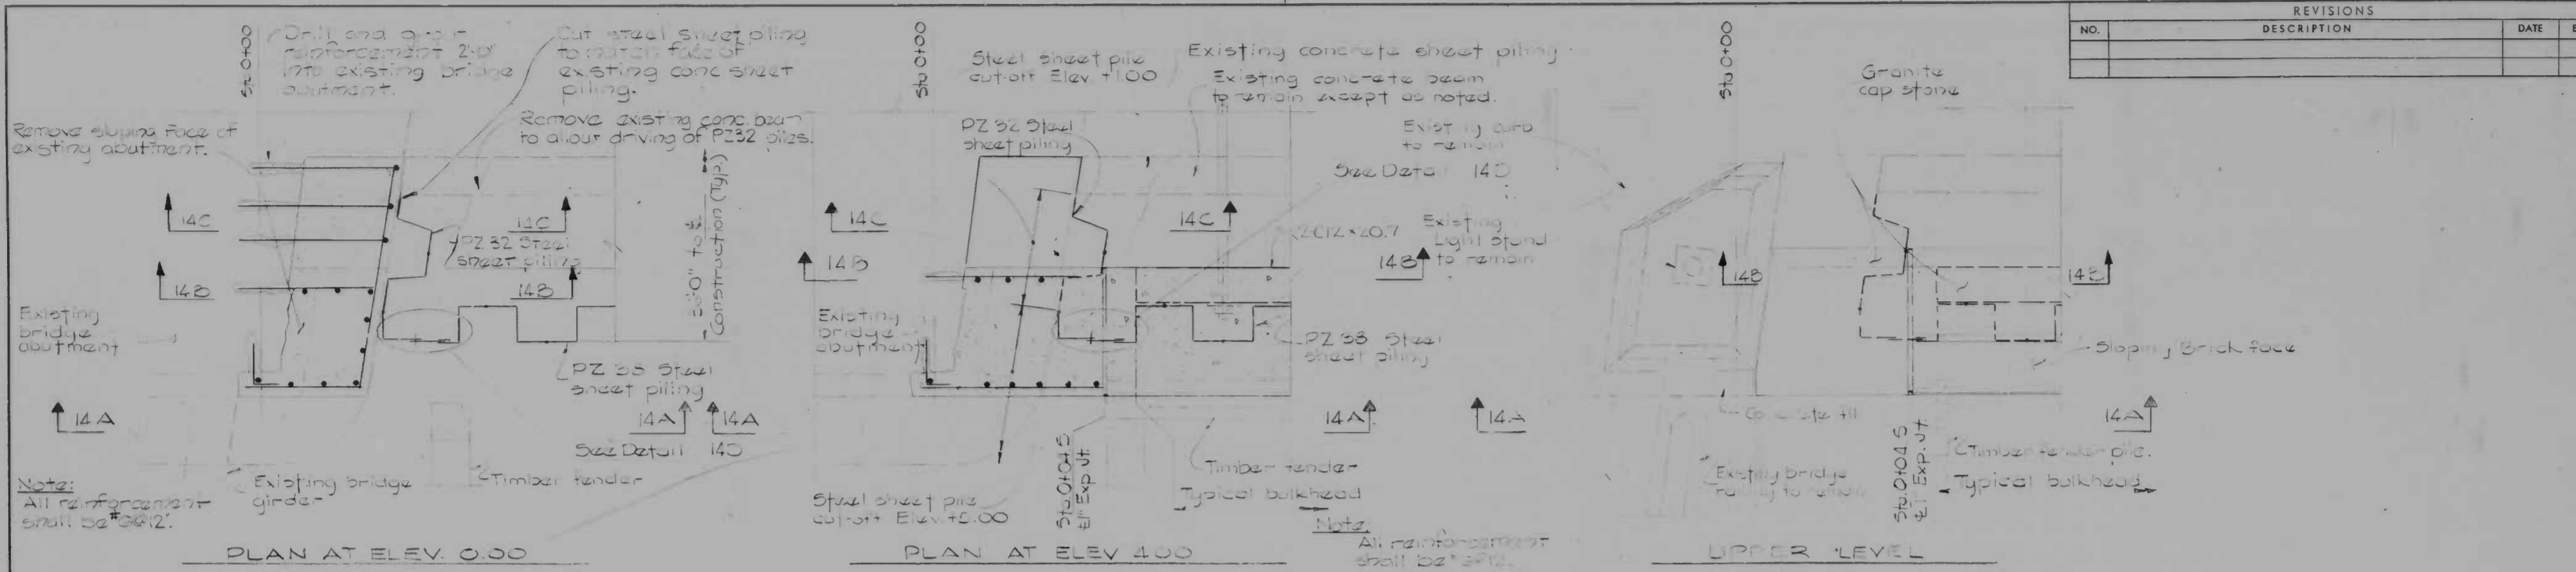 REVISIONS
NO.
DESCRIPTION
DATE
Sta 0+00
Drill and grout
reinforcement 2'-0"
into existing bridge
abutment.
Cut steel sheet piling
to match face of
existing conc sheet
piling.
Remove sloping face of
existing abutment.
Remove existing conc. beam
to allow driving of PZ32 piles.
14C
14C
PZ 32 Steel
sheet piling
14B
14B
Existing
bridge
abutment
PZ 38 Steel
sheet piling
Construction (Typ.)
14A
14A
See Detail 14D
Note:
All reinforcement
shall be
Existing bridge
girder
Timber fender
PLAN AT ELEV. 0.00
Sta 0+00
Steel sheet pile
cut-off Elev. +1.00
Existing concrete sheet piling
Existing concrete beam
to remain except as noted.
PZ 32 Steel
sheet piling
Existing curb
to remain
See Detail 14D
14C
14C
2C12×20.7
Existing
Light stand
to remain
14B
14B
Existing
bridge
abutment
PZ 38 Steel
sheet piling
14A
14A
Sta. 0+04.5
℄ 1" Exp. Jt.
Timber fender
Typical bulkhead
Steel sheet pile
cut-off Elev. +5.00
Note:
All reinforcement
shall be
PLAN AT ELEV 4.00
Sta 0+00
Granite
cap stone
14B
14B
Sloping Brick face
Concrete fill
14A
14A
Sta. 0+04.5
℄ 1" Exp. Jt.
Timber fender pile.
Typical bulkhead
Existing bridge
railing to remain
UPPER LEVEL